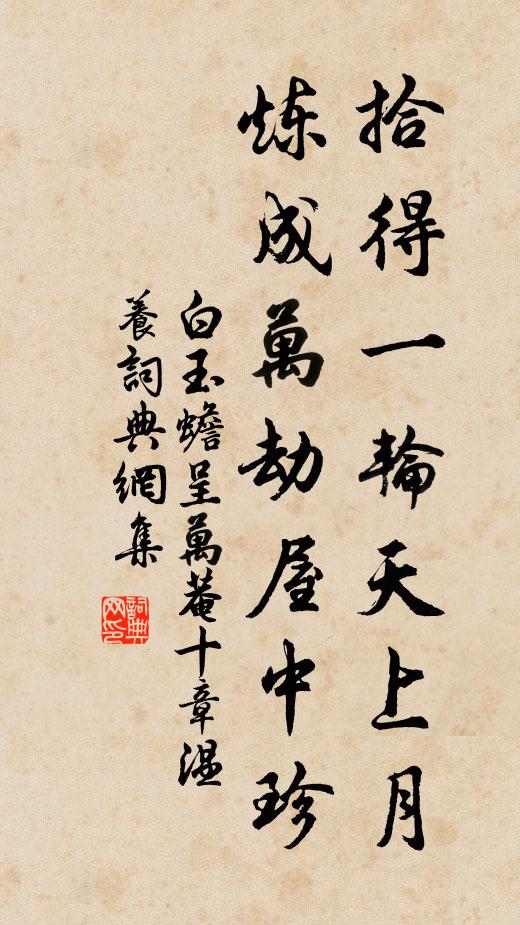 拾得一輪天上月
炼成萬劫屋中珍
白玉蟾呈萬菴十章温
養詞典網集
詞典网印